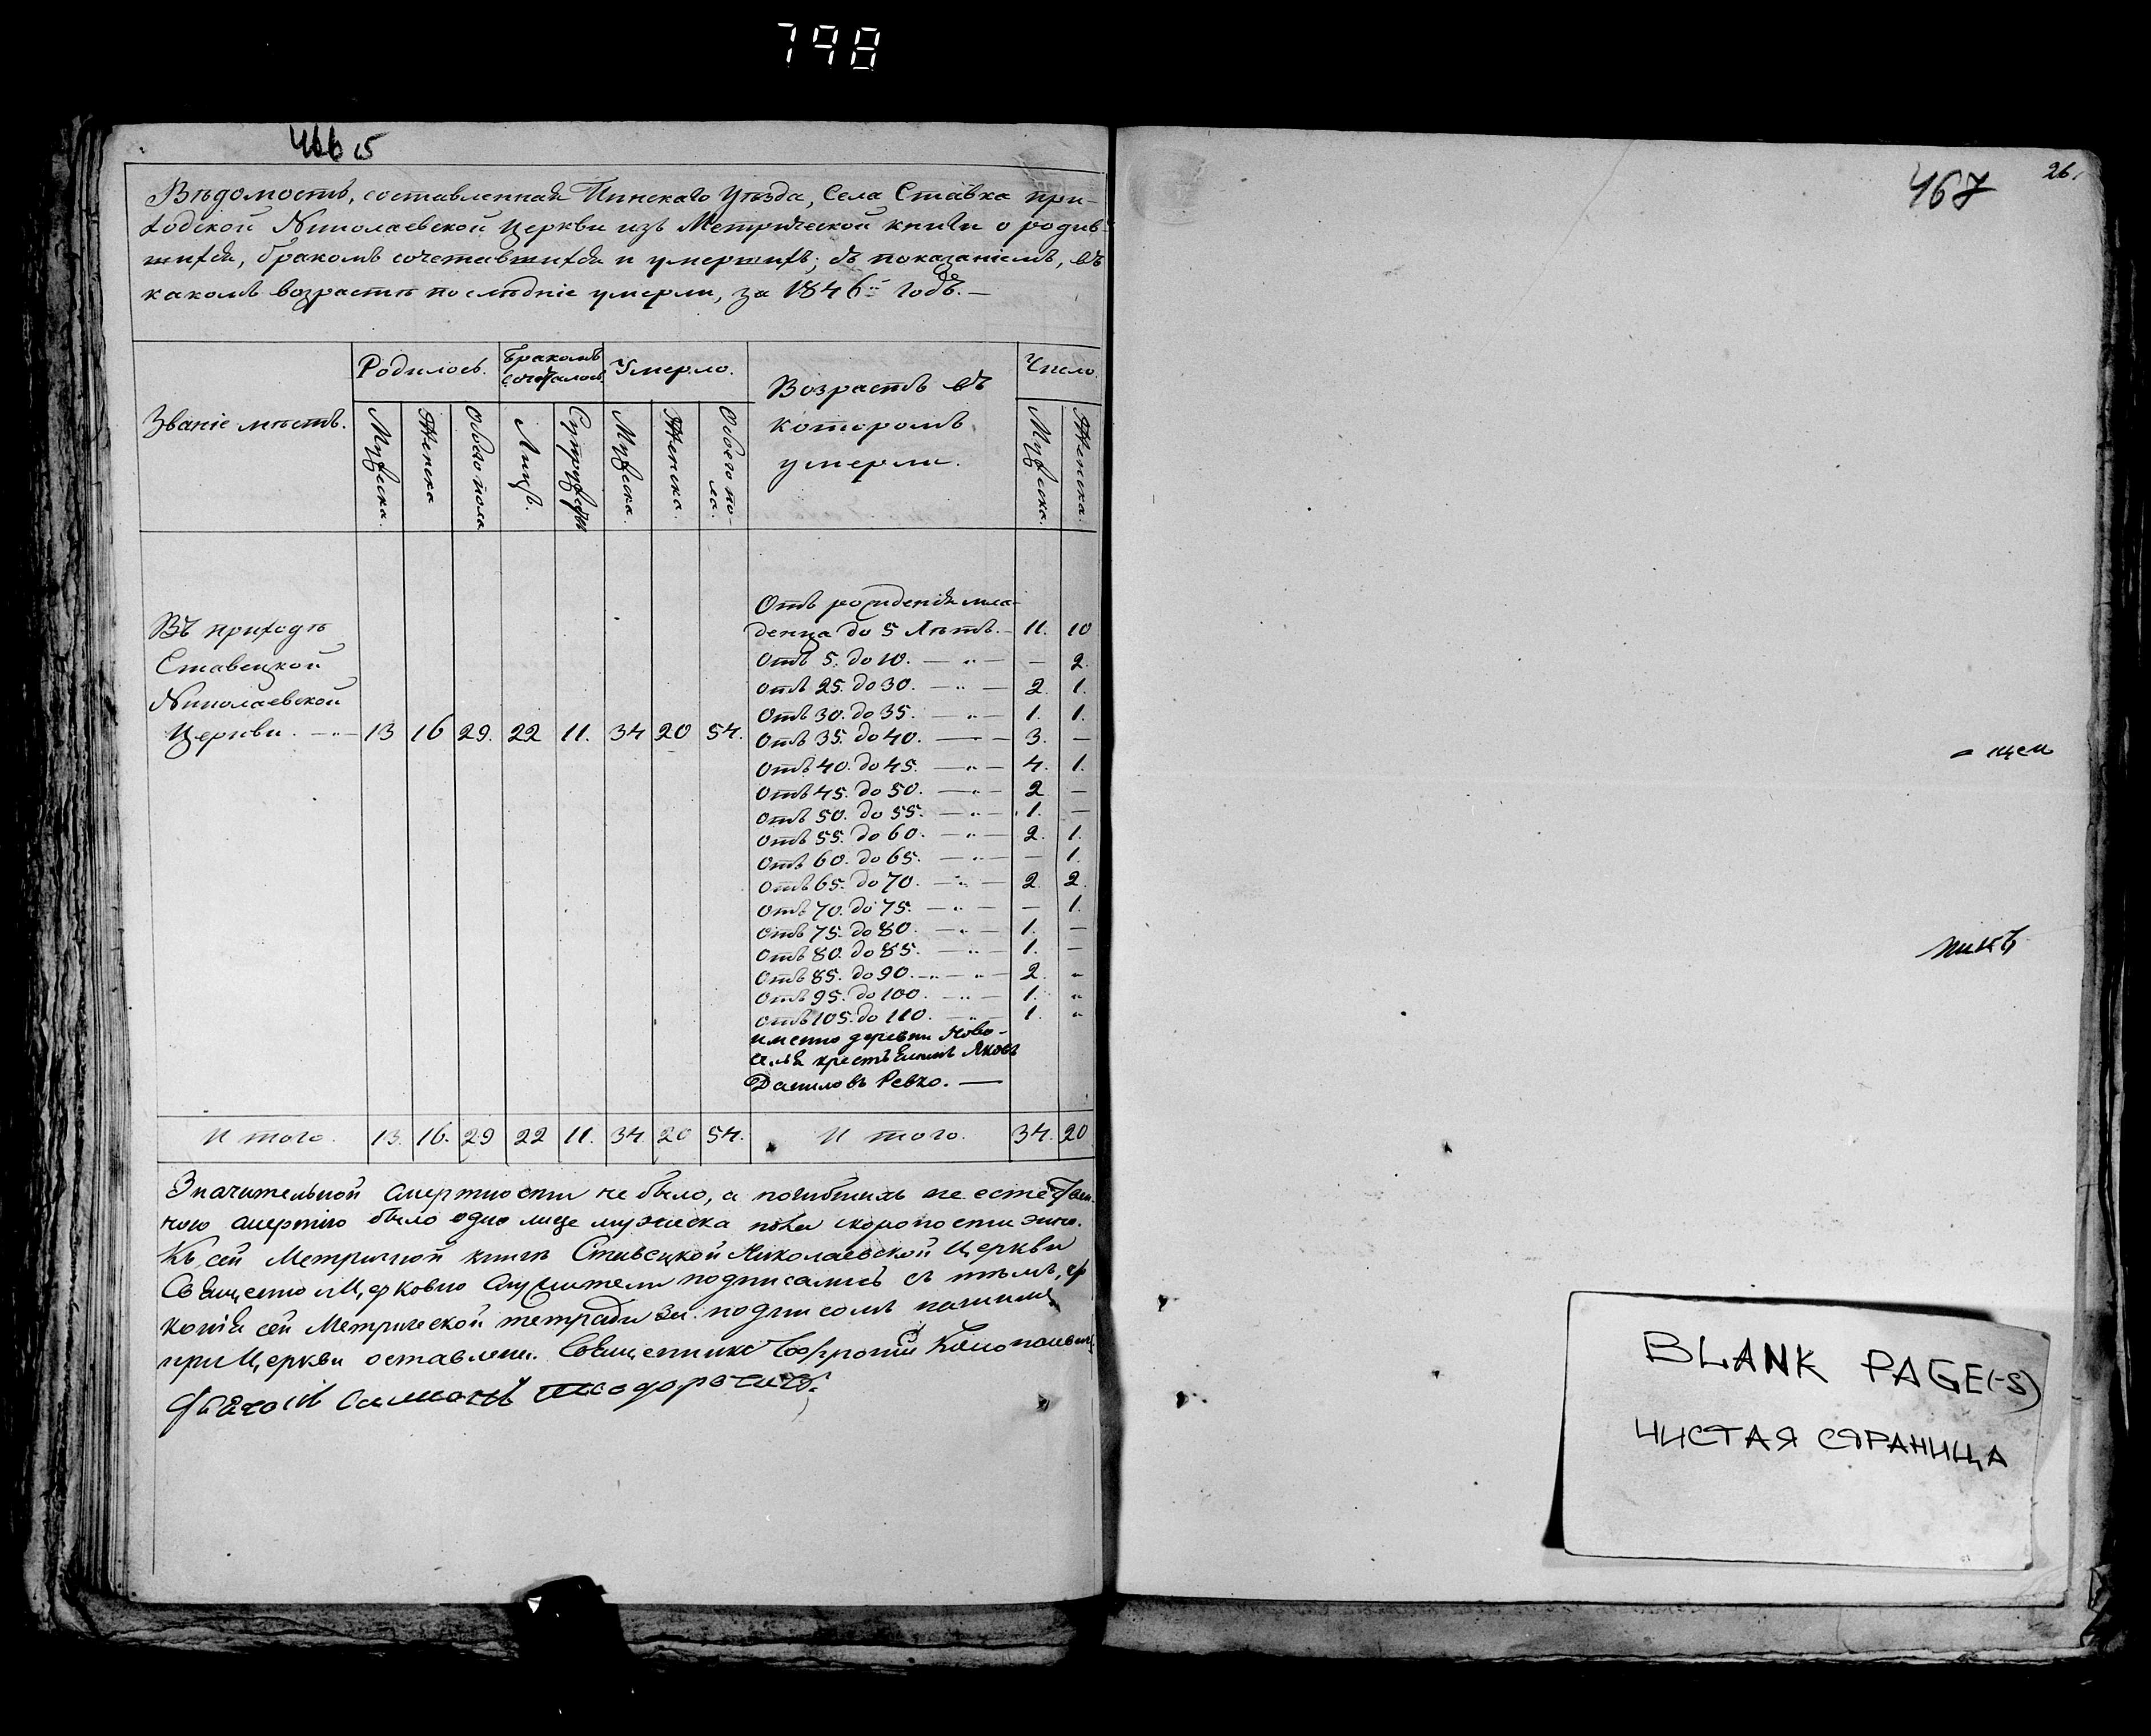 798
466 об
Вѣдомость, составленная Пинскаго Уѣзда, Села Ставка при-
ходской Николаевской Церкви изъ Метрической книги о родив-
шихся, бракомъ сочетавшихся и умершихъ; съ показаніемъ, въ
какомъ возрастѣ послѣдніе умерли, за 1846й годъ. —
Званіе мѣстъ.
Родилось.
Бракомъ сочеталось
Умерло.
Возрастъ въ
которомъ
умерли.
Число.
Мужеска.
Женска
Обоего пола
Лицъ.
Супружествъ
Мужеска.
Женска.
Обоего по-
ла.
Мужеска.
Женска.
Въ приходѣ
Ставецкой
Николаевской
Церкви. 13 16 29. 22 11. 34 20 54.
Отъ рожденія мла-
денца до 5 Лѣтъ. — 11. 10
Отъ 5. до 10. — „ — — 2.
Отъ 25. до 30. — „ — 2. 1.
Отъ 30. до 35. — „ — 1. 1.
Отъ 35. до 40. — „ — 3. —
Отъ 40. до 45. — „ — 4. 1.
Отъ 45. до 50. — „ — 2 —
Отъ 50. до 55. — „ — 1. —
Отъ 55. до 60. — „ — 2. 1.
Отъ 60. до 65. — „ — — 1.
Отъ 65. до 70. — „ — 2. 2.
Отъ 70. до 75. — „ — — 1.
Отъ 75. до 80. — „ — 1. —
Отъ 80. до 85. — „ — 1. —
Отъ 85. до 90. — „ — „ — 2. „
Отъ 95. до 100. — „ — 1. „
Отъ 105. до 110. — „ — 1. „
именно деревни Ново-
селья крестьянинъ Яковъ
Даниловъ Ревко. —
Итого. 13. 16. 29 22 11. 34. 20 54. Итого. 34. 20
Значительной смертности не было, а погибшихъ не естествен-
ною смертію было одно лице мужеска пола скоропостижно.
Къ сей Метричной книгѣ Ставецкой Николаевской Церкви
Священно и Церковно служители подписались съ тѣмъ, что
копія сей Метрической тетради за подписомъ нашимъ
при Церкви оставлена. Священникъ
Дьячокъ
467
26.
= щен
никъ
BLANK PAGE(-S)
ЧИСТАЯ СТРАНИЦА